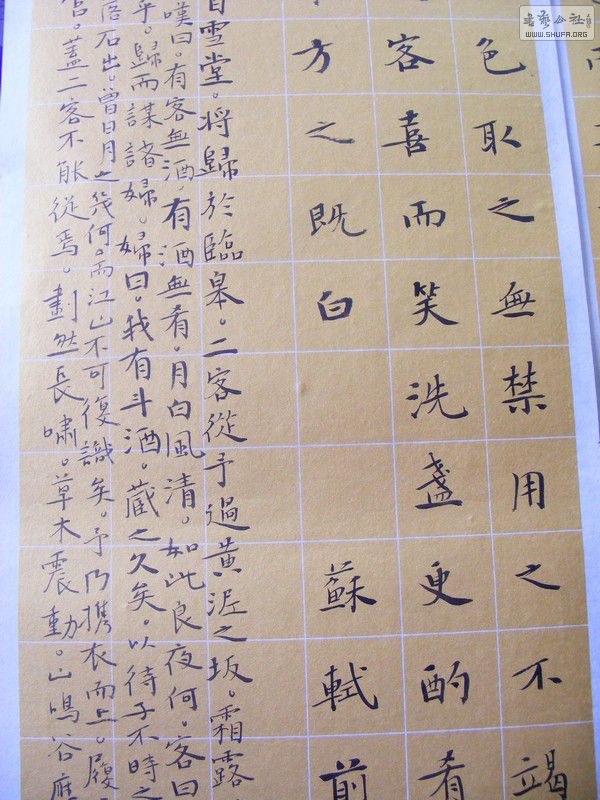 書藝公社
WWW.SHUFA.ORG
色取之無禁用之不竭
客喜而笑洗盞更酌肴
方之既白 蘇軾前
自雪堂。將歸於臨皋。二客從予過黃泥之坂。霜露
嘆曰。有客無酒。有酒無肴。月白風清。如此良夜何。客曰
乎。歸而謀諸婦。婦曰。我有斗酒。藏之久矣。以待子不時之
落石出。曾日月之幾何。而江山不可復識矣。予乃携衣而上。履
宮。蓋二客不能從焉。劃然長嘯。草木震動。山鳴谷應